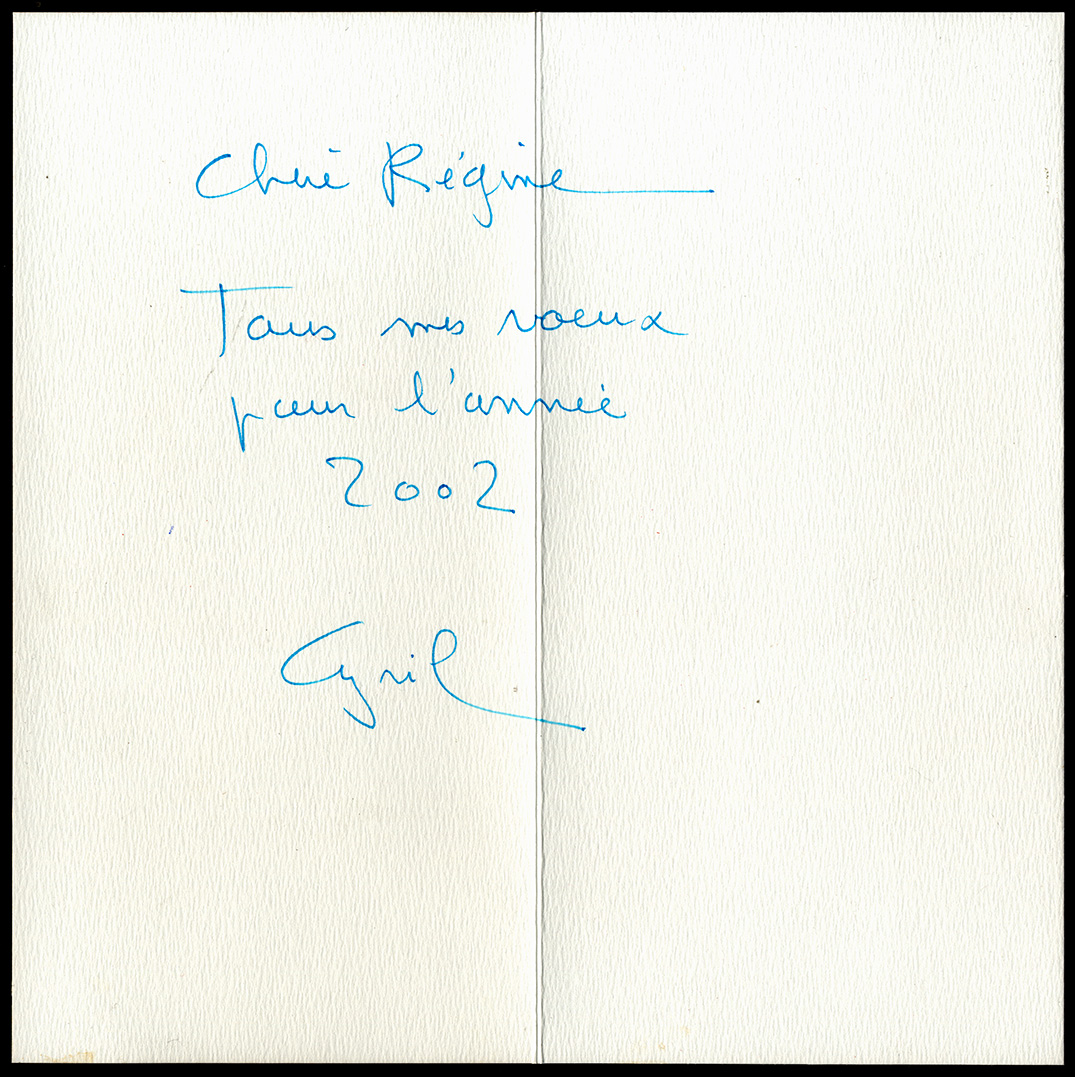 Chère Régine
Tous mes voeux
pour l'année
2002
Cyril